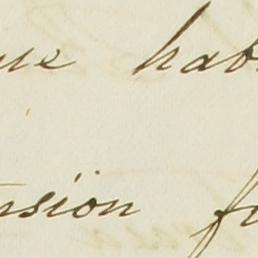 ue hab
nsion f